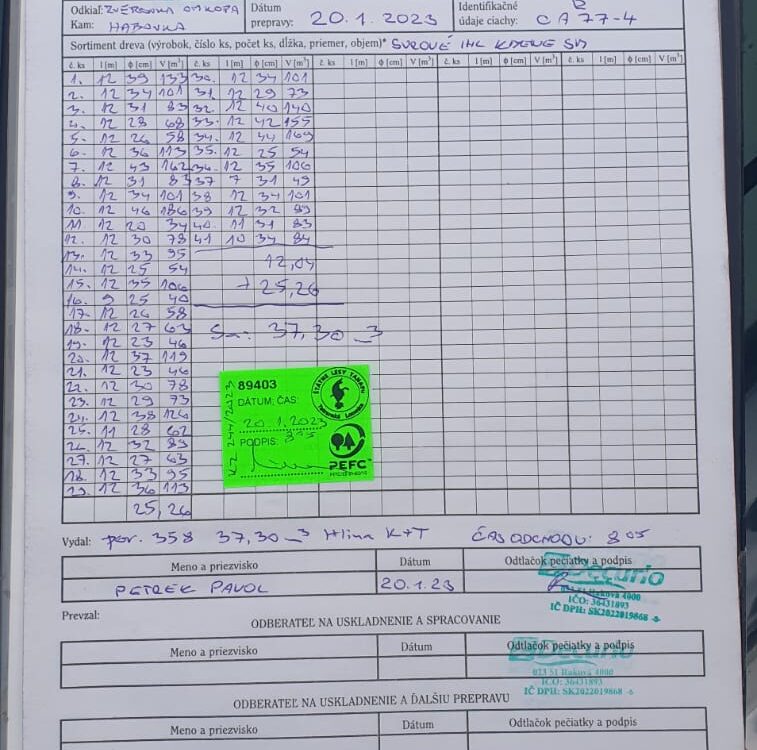 Odkiaľ: ZVEROVKA
Kam: HABOVKA
Dátum prepravy: 20.1.2023
Identifikačné údaje ciahy: CA 77-4
Sortiment dreva (výrobok, číslo ks, počet ks, dĺžka, priemer, objem)* SUROVÉ IHL
č. ks l [m] ϕ [cm] V [m³] č. ks l [m] ϕ [cm] V [m³] č. ks l [m] ϕ [cm] V [m³] č. ks l [m] ϕ [cm] V [m³] č. ks l [m] ϕ [cm] V [m³]
1. 12 39 133 30. 12 34 101
2. 12 34 101 31 12 29 73
3. 12 31 83 32. 12 40 140
4. 12 28 68 33. 12 42 155
5. 12 26 58 34. 12 44 169
6. 12 36 113 35. 12 25 54
7. 12 43 162 36. 12 35 106
8. 12 31 83 37 7 31 49
9. 12 34 101 38 12 34 101
10. 12 46 186 39 12 32 89
11 12 20 34 40. 11 31 83
12. 12 30 78 41 10 34 84
13. 12 33 95
14. 12 25 54 12,04
15. 12 35 106 + 25,26
16. 9 25 40
17. 12 26 58
18. 12 27 63 37,30
19. 12 23 46
20. 12 37 119
21. 12 23 46
22. 12 30 78
23. 12 29 73
24. 12 38 126
25. 11 28 62
26. 12 32 89
27. 12 27 63
28. 12 33 95
29. 12 36 113
25,26
ŠTÁTNE LESY TANAPU
Tatranská Lomnica
89403
DÁTUM, ČAS:
20.1.2023
PODPIS: 805
KZ 244/2023
PEFC
Vydal: por. 358 37,30 Hlina K+T ČAS ODCHODU: 805
Meno a priezvisko Dátum Odtlačok pečiatky a podpis
PETREK PAVOL 20.1.23
Decurio
Raková 4000
IČO: 36431893
IČ DPH: SK2022019868 -6
Prevzal:
ODBERATEĽ NA USKLADNENIE A SPRACOVANIE
Meno a priezvisko Dátum Odtlačok pečiatky a podpis
Decurio
023 51 Raková 4000
IČO: 36431893
IČ DPH: SK2022019868 -6
ODBERATEĽ NA USKLADNENIE A ĎALŠIU PREPRAVU
Meno a priezvisko Dátum Odtlačok pečiatky a podpis